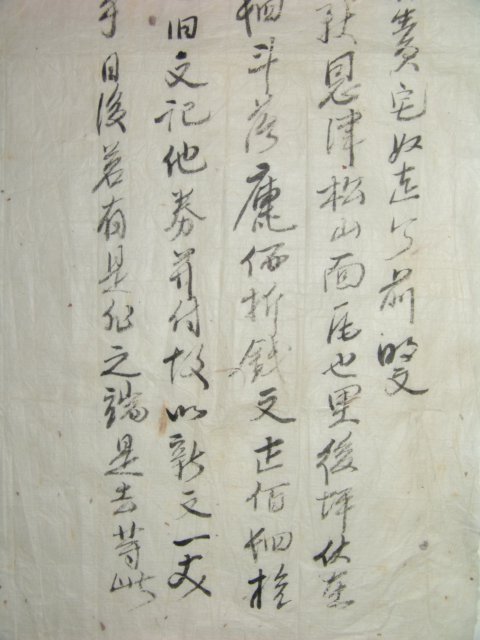 宅奴 前明文
恩津松山面 也里後坪伏在
斗落 価折錢文 佰 拾
旧文記他券并付故以新文一丈
日後若有是非之端是去等此